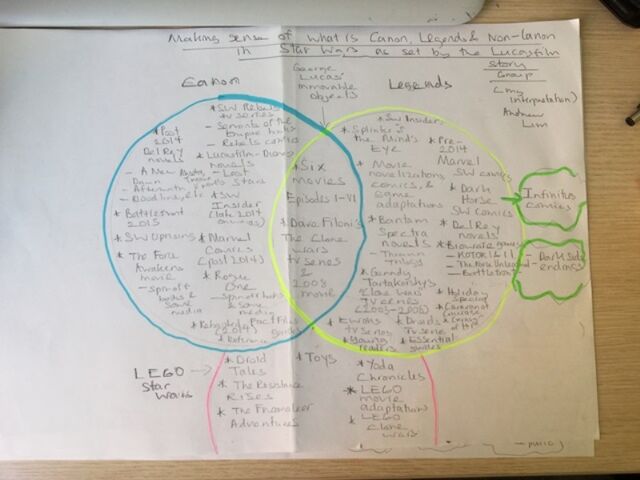 Making sense of what is Canon, Legends & Non-Canon
in Star Wars as set by the Lucasfilm
Story
Group
(my
interpretation)
Andrew
Lim
Canon
George
Lucas'
immovable
objects
Legends
* SW Rebels
tv series
- Servants of the
Empire books
- Rebels comics
* Post
2014
Del Rey
novels
- A New
Dawn
- Aftermath
- Bloodline, etc
* Lucasfilm-Disney
novels
- Lost
Stars
* SW
Insider
(late 2014
onwards)
* Battlefront
2015
* SW Uprising
* The Force
Awakens
movie
- Spin off
books &
some
media
* Marvel
Comics
(post 2014)
* Rogue
One
- Spin off books
& some
media
* Rebooted Fact Files
(2014)
* Reference
guides
* Six
movies
Episodes I-VI
* Dave Filoni's
The Clone
Wars
tv series
&
2008
movie
* SW Insider
* Splinter of
the Mind's
Eye
* Pre-
2014
Marvel
SW comics
* Movie
novelizations
comics, &
game
adaptations
* Dark
Horse
SW Comics
* Bantam
Spectra
novels
- Thrawn
Trilogy
* Del Rey
novels
* Bioware games
- KOTOR I & II
- The Force Unleashed
- Battlefront
* Genndy
Tartakovsky's
Clone Wars
TV series
(2003-2005)
* Holiday
Special
* Caravan of
Courage
* Ewoks
tv series
* Droids
TV series
* Young
readers
* Essential
guides
Infinities
comics
- Dark Side
endings
LEGO
Star
Wars
* Droid
Tales
* The Resistance
Rises
* The Freemaker
Adventures
* Toys
* Yoda
Chronicles
* LEGO
movie
adaptations
* LEGO
Clone
Wars